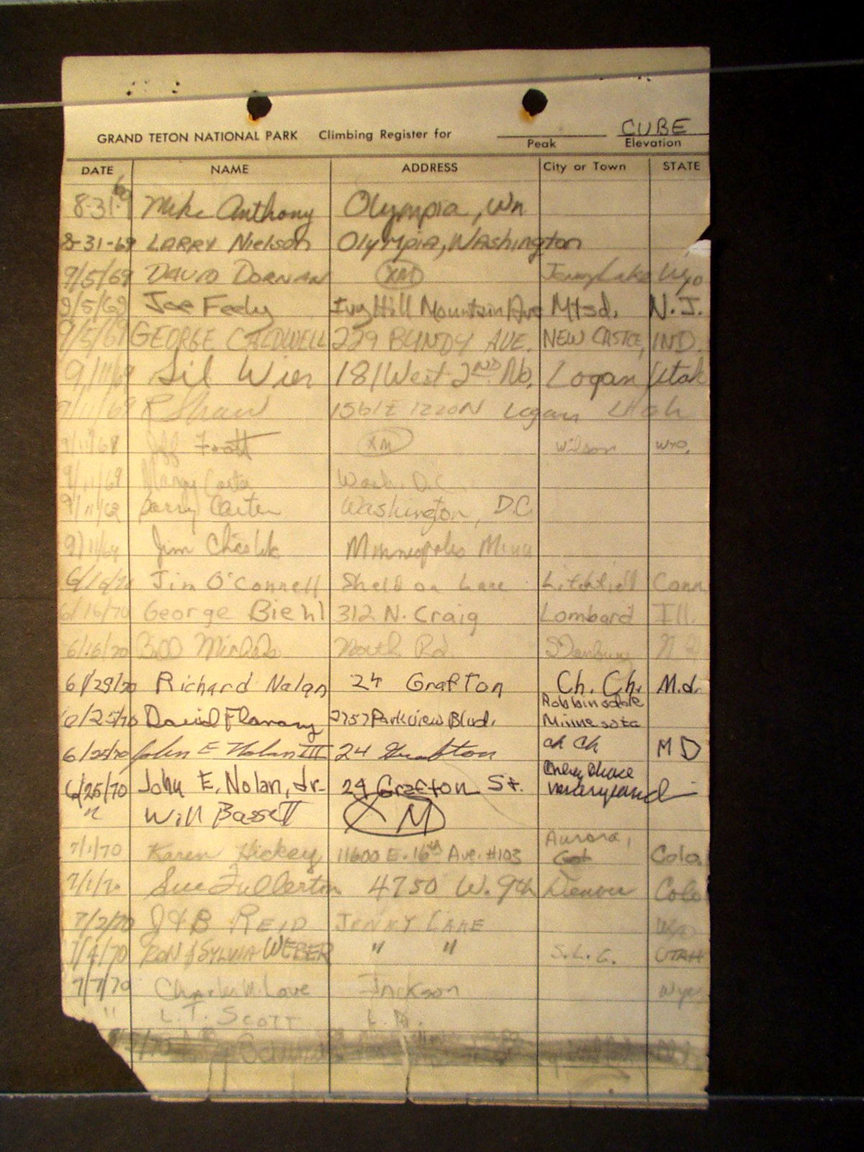 CUBE
GRAND TETON NATIONAL PARK Climbing Register for
Peak Elevation
DATE NAME ADDRESS City or Town STATE
8-31-69 Mike Anthony Olympia, Wn
8-31-69 LARRY Nielson Olympia, Washington
9/5/69 DAVID DORNAN XM Jenny Lake Wyo
9/5/69 Joe Feely Ivy Hill Mountain Ave Mtsd. N.J.
9/5/69 GEORGE CALDWELL 229 BUNDY AVE. NEW CASTLE, IND.
9/11/69 Sil Wier 181 West 2ND No. Logan Utah
R Shaw Logan Utah
XM Wilson Wyo.
9/11/69 Carter Wash. D.C.
Barry Carter Washington, D.C
Jim Minneapolis Minn
6/16/70 Jim O'Connell Sheldon Lane Litchfield Conn
6/16/70 George Biehl 312 N. Craig Lombard Ill.
6/16/70 Bill North Rd.
6/29/70 Richard Nolan 24 Grafton Ch. Ch. M.d.
Robbinsdale
6/25/70 David Flannery 2757 Parkview Blvd. Minnesota
6/25/70 John E Nolan III 24 Grafton Ch Ch MD
Chevy Chase
6/25/70 John E. Nolan, Jr. 24 Grafton St. Maryland
" Will Bassett XM
Aurora,
7/1/70 Karen Hickey 11600 E. 16th Ave. #103 Colo.
7/1/70 Sue Fullerton 4750 W. 9th Denver Colo
7/2/70 J & B REID JENNY LAKE Wyo
7/4/70 RON & SYLVIA WEBER " " S.L.C. UTAH
7/7/70 Charles Love Jackson Wyo
" L.T. SCOTT L.A.